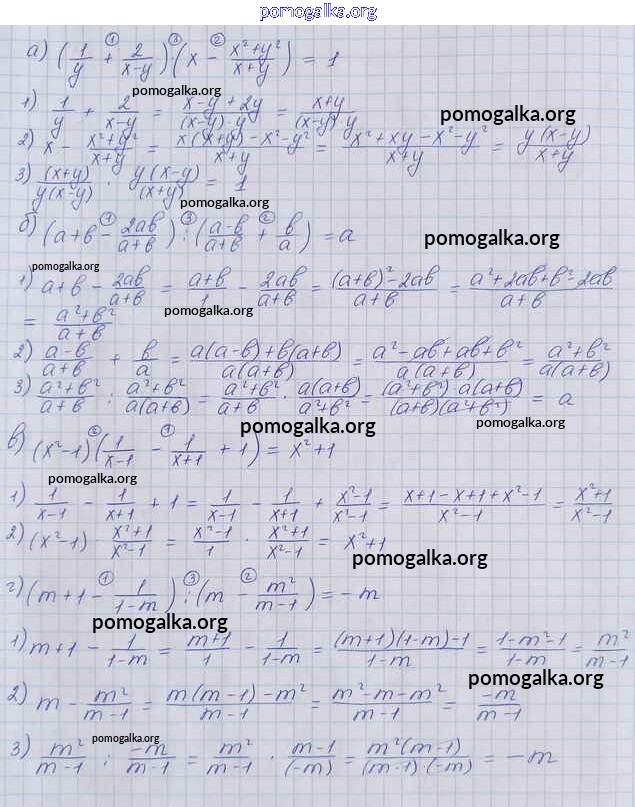 pomogalka.org
а) (1/y + 2/(x-y)) · (x - (x²+y²)/(x+y)) = 1
① ③ ②
pomogalka.org
1) 1/y + 2/(x-y) = (x-y+2y)/((x-y)·y) = (x+y)/((x-y)·y)
pomogalka.org
2) x - (x²+y²)/(x+y) = (x(x+y)-x²-y²)/(x+y) = (x²+xy-x²-y²)/(x+y) = y(x-y)/(x+y)
3) (x+y)/(y(x-y)) · y(x-y)/(x+y) = 1
pomogalka.org
б) (a+b - 2ab/(a+b)) : ((a-b)/(a+b) + b/a) = a
① ③ ②
pomogalka.org
pomogalka.org
1) a+b - 2ab/(a+b) = (a+b)/1 - 2ab/(a+b) = ((a+b)²-2ab)/(a+b) = (a²+2ab+b²-2ab)/(a+b)
pomogalka.org
= (a²+b²)/(a+b)
2) (a-b)/(a+b) + b/a = (a(a-b)+b(a+b))/(a(a+b)) = (a²-ab+ab+b²)/(a(a+b)) = (a²+b²)/(a(a+b))
3) (a²+b²)/(a+b) : (a²+b²)/(a(a+b)) = (a²+b²)/(a+b) · a(a+b)/(a²+b²) = (a²+b²)·a(a+b)/((a+b)(a²+b²)) = a
pomogalka.org
pomogalka.org
в) (x²-1)(1/(x-1) - 1/(x+1) + 1) = x²+1
② ①
pomogalka.org
1) 1/(x-1) - 1/(x+1) + 1 = 1/(x-1) - 1/(x+1) + (x²-1)/(x²-1) = (x+1-x+1+x²-1)/(x²-1) = (x²+1)/(x²-1)
2) (x²-1) · (x²+1)/(x²-1) = (x²-1)/1 · (x²+1)/(x²-1) = x²+1
pomogalka.org
г) (m+1 - 1/(1-m)) : (m - m²/(m-1)) = -m
① ③ ②
pomogalka.org
1) m+1 - 1/(1-m) = (m+1)/1 - 1/(1-m) = ((m+1)(1-m)-1)/(1-m) = (1-m²-1)/(1-m) = m²/(m-1)
pomogalka.org
2) m - m²/(m-1) = (m(m-1)-m²)/(m-1) = (m²-m-m²)/(m-1) = -m/(m-1)
pomogalka.org
3) m²/(m-1) : -m/(m-1) = m²/(m-1) · (m-1)/(-m) = m²(m-1)/((m-1)·(-m)) = -m